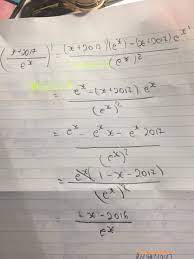 (x+2017/e^x)' = (x+2017)'(e^x) - (x+2017)(e^x)'/(e^x)^2
= e^x - (x+2017) e^x/(e^x)^2
= e^x - e^x x - e^x 2017/(e^x)^2
= e^x (1 - x - 2017)/(e^x)^2
= - x - 2016/e^x